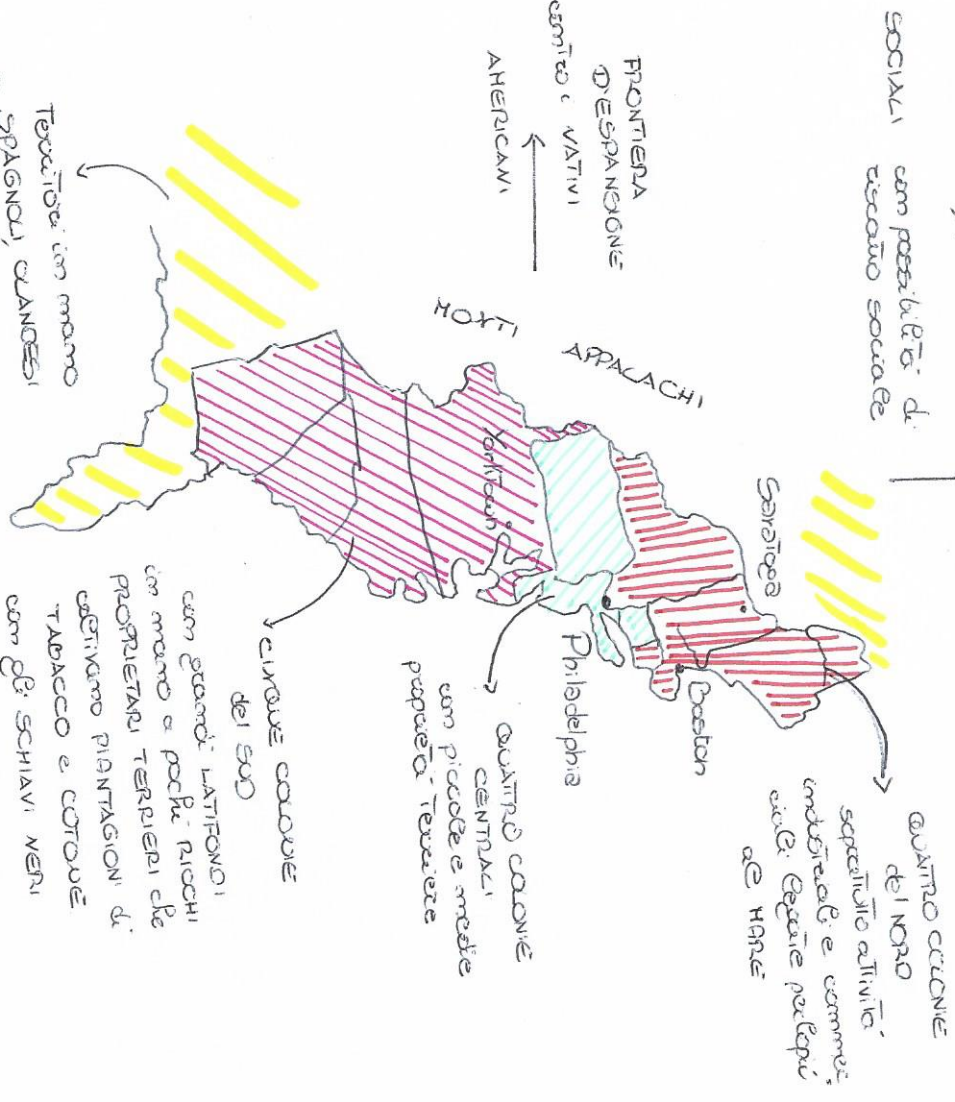 SOCIALI con possibilità di
riscatto sociale
FRONTIERA
D'ESPANSIONE
contro i NATIVI
AMERICANI
MONTI APPALACHI
Territori in mano
SPAGNOLI, OLANDESI
Saratoga
Boston
Philadelphia
Yorktown
QUATTRO COLONIE
del NORD
soprattutto attività
industriali e commer=
ciali legate perlopiù
al MARE
QUATTRO COLONIE
CENTRALI
con piccole e medie
proprietà terriere
CINQUE COLONIE
del SUD
con grandi LATIFONDI
in mano a pochi RICCHI
PROPRIETARI TERRIERI che
coltivano PIANTAGIONI di
TABACCO e COTONE
con gli SCHIAVI NERI